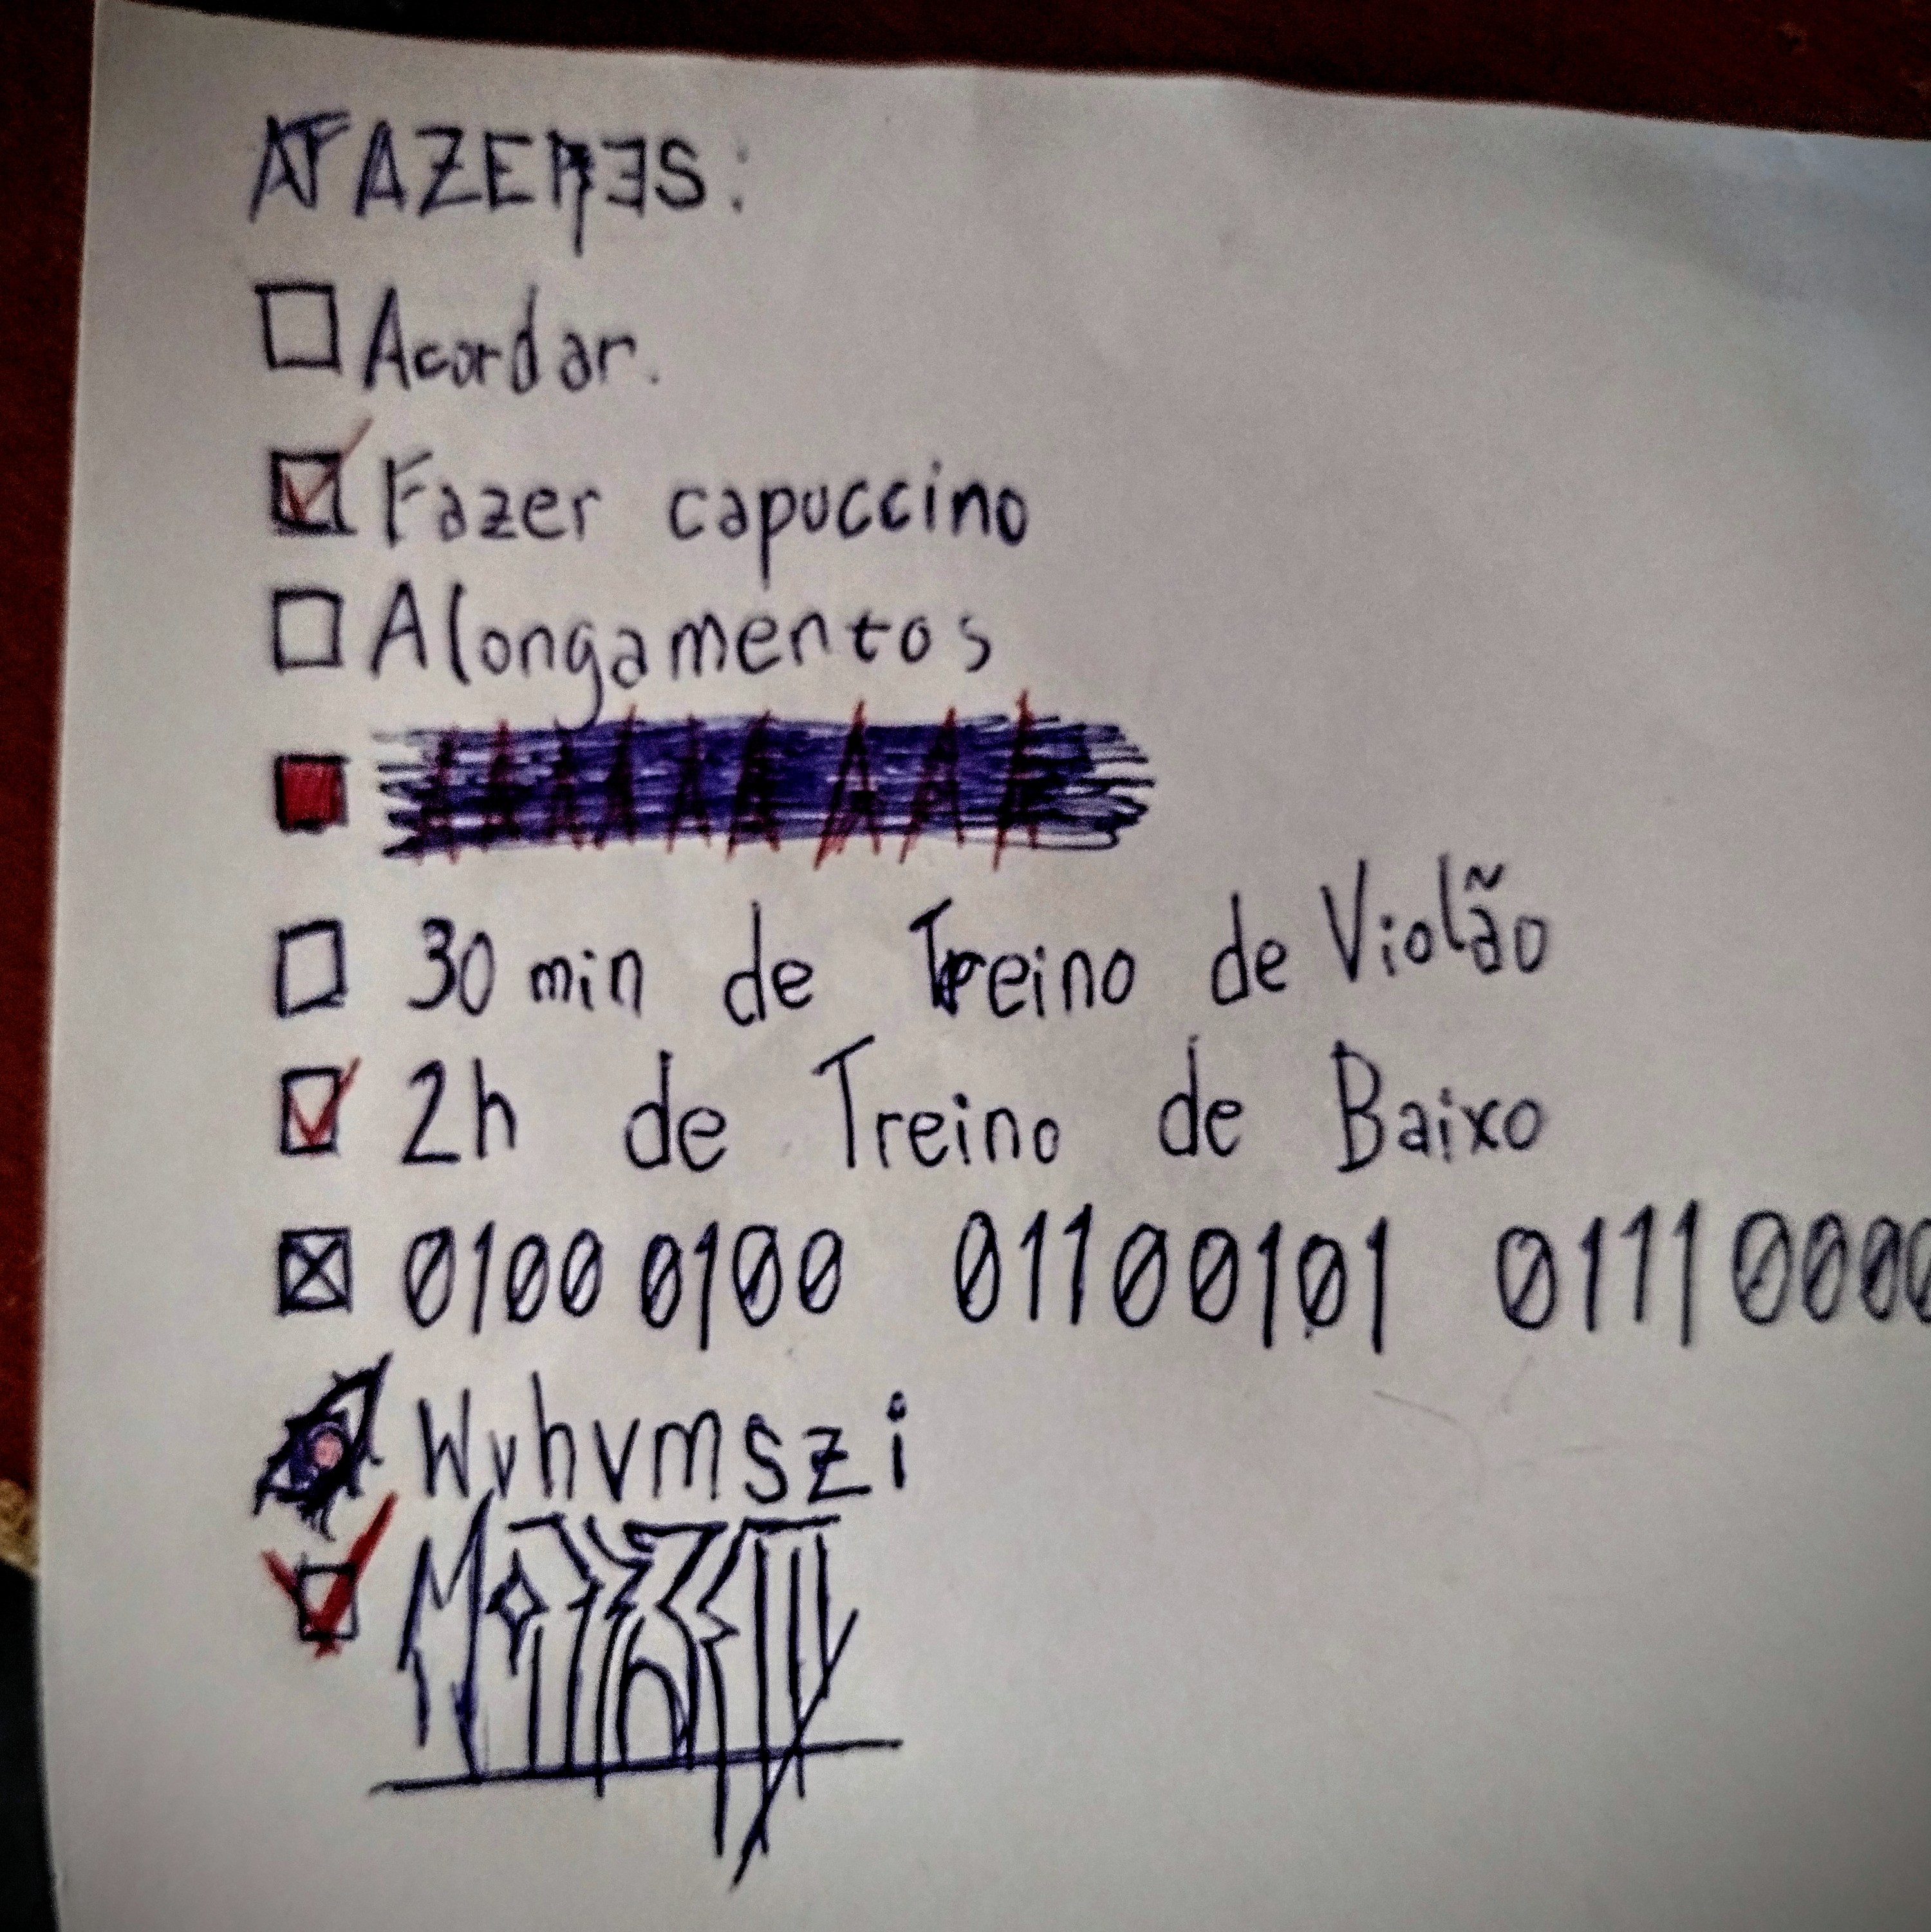 AFAZERES:
Acordar.
Fazer capuccino
Alongamentos
30 min de Treino de Violão
2h de Treino de Baixo
01000100 01100101 01110000
Wvhvmszi